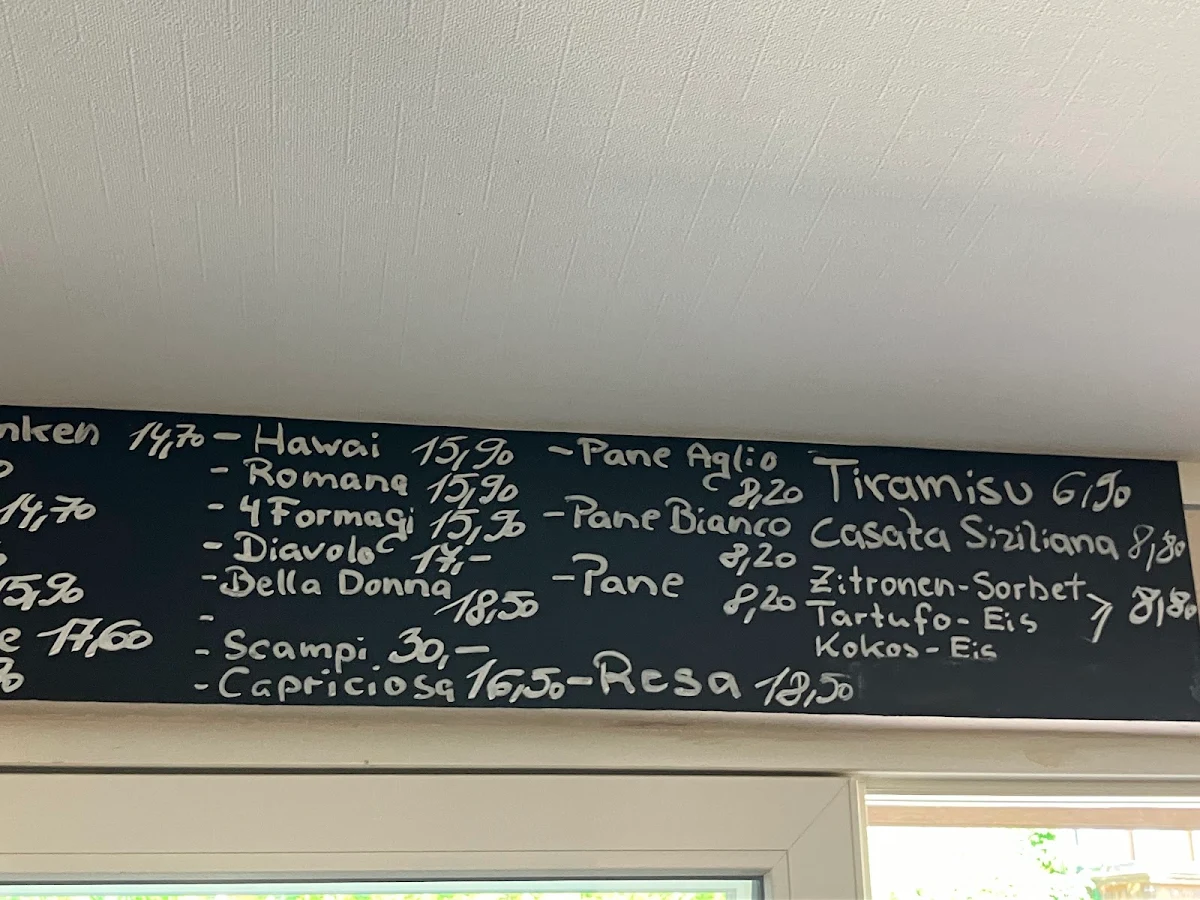 nken 14,70
14,70
15,90
e 17,60
- Hawai 15,90
- Romana 15,90
- 4 Formagi 15,90
- Diavolo 17,-
- Bella Donna 18,50
-
- Scampi 30,-
- Capriciosa 16,50
- Pane Aglio 8,20
- Pane Bianco 8,20
- Pane 8,20
- Resa 18,50
Tiramisu 6,90
Casata Siziliana 8,80
Zitronen-Sorbet
Tartufo-Eis 8,80
Kokos-Eis